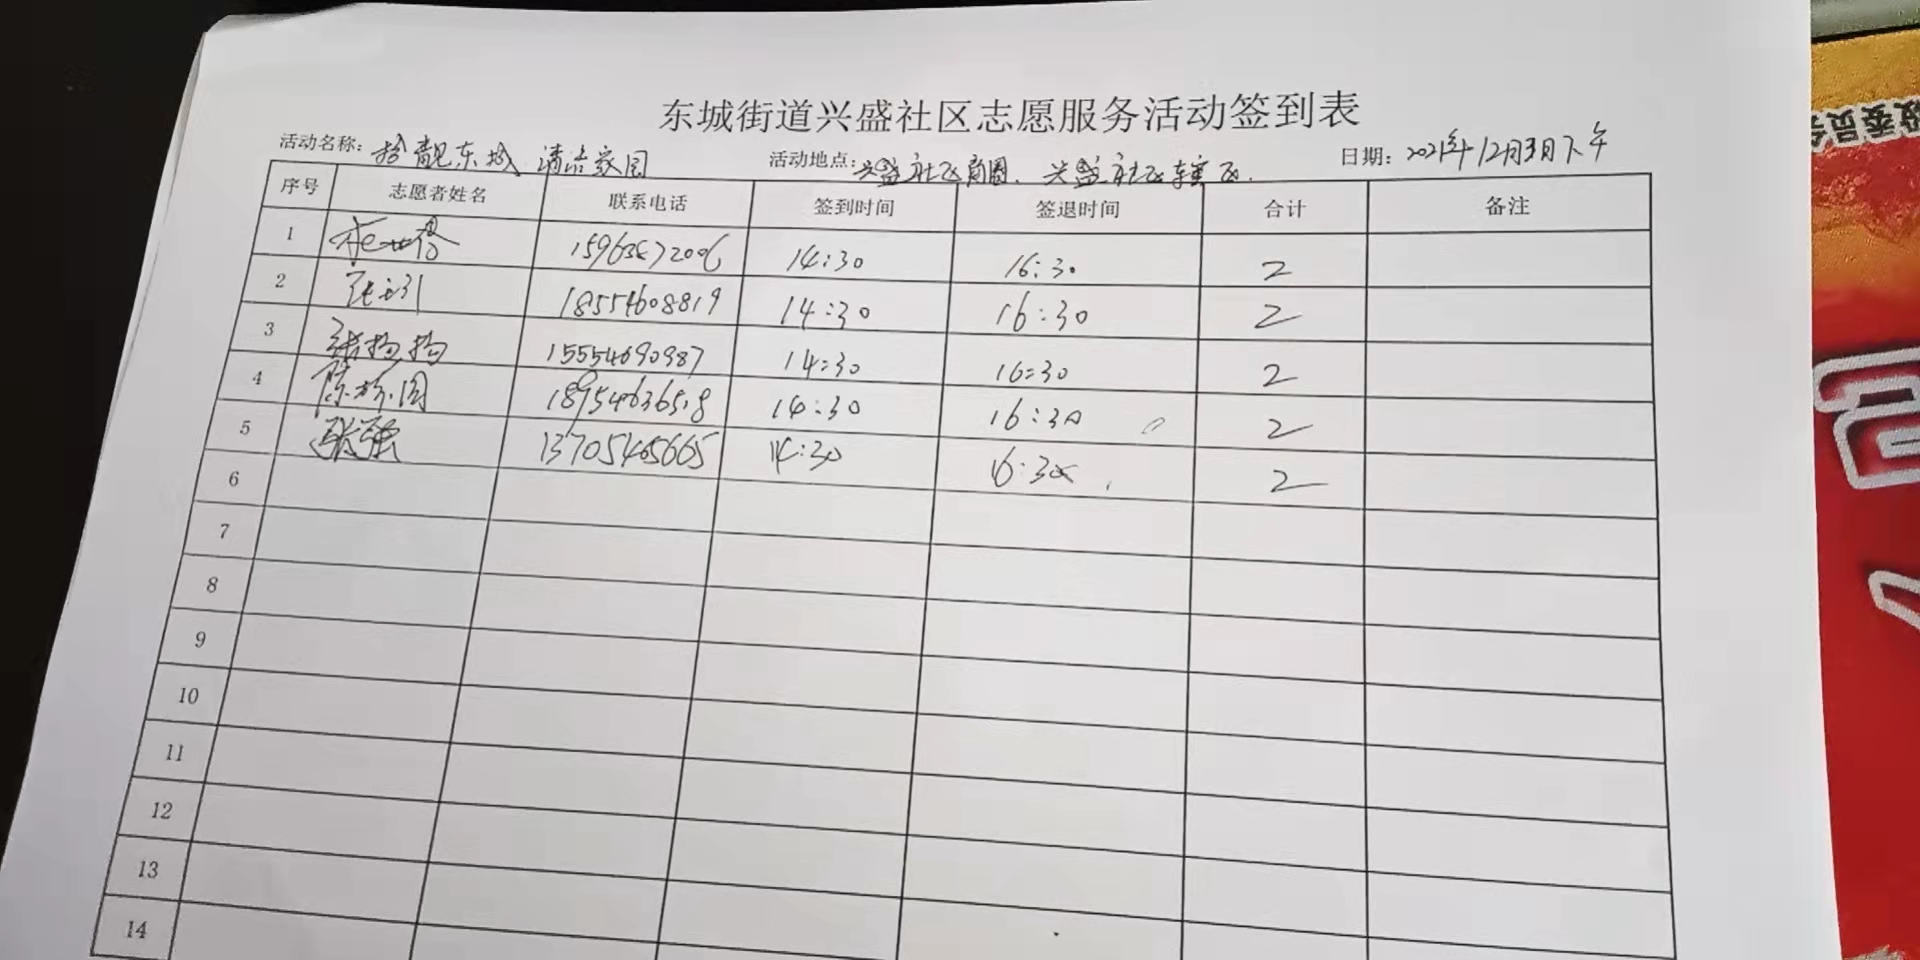 东城街道兴盛社区志愿服务活动签到表
活动名称: 拾靓东城 清洁家园 活动地点: 兴盛社区商圈、兴盛社区辖区. 日期: 2021年12月3日下午
序号 志愿者姓名 联系电话 签到时间 签退时间 合计 备注
1 15963572006 14:30 16:30 2
2 18554608819 14:30 16:30 2
3 15554690987 14:30 16:30 2
4 18954636518 14:30 16:30 2
5 张强 13705465665 14:30 16:30 2
6
7
8
9
10
11
12
13
14
委员会